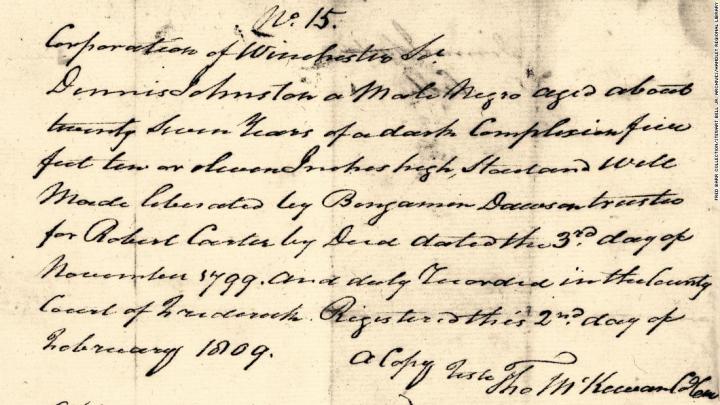 No. 15.
Corporation of Winchester Sc.
Dennis Johnston a Male Negro aged about
twenty Seven Years of a dark Complexion five
feet ten or eleven Inches high, Stout and Well
Made liberated by Bengamin Dawson trustee
for Robert Carter by Deed dated the 3rd day of
November 1799. and duly Recorded in the County
Court of Frederick. Registered this 2nd day of
February 1809.
a Copy
Teste
Tho McKewan
FRED BARR COLLECTION/STEWART BELL JR. ARCHIVES/HANDLEY REGIONAL LIBRARY